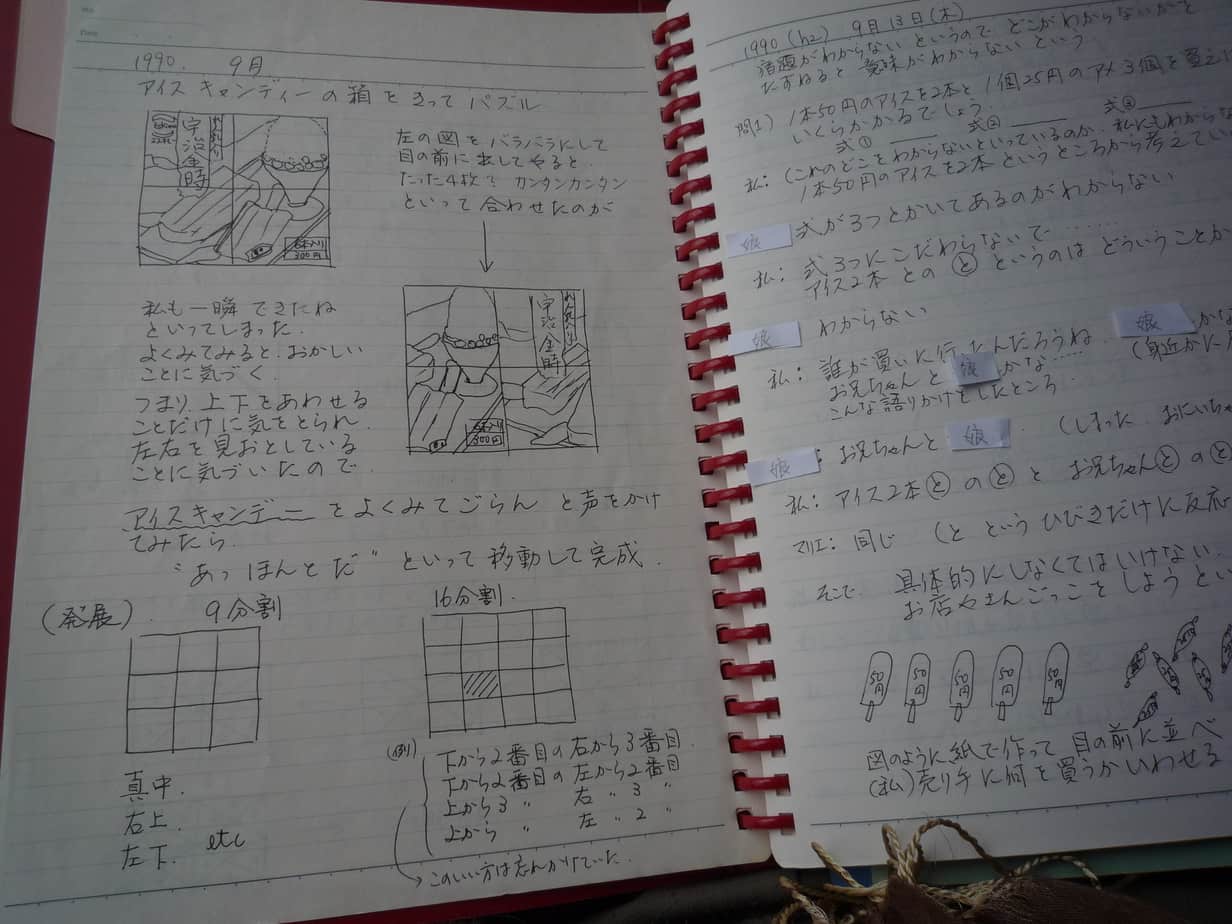 1990. 9月
アイスキャンディーの箱をきってパズル
宇治金時
れん乳入り
6本入り
300円
左の図をバラバラにして
目の前に出してやると、
たった4枚？ カンタンカンタン
といって合わせたのが
私も一瞬できたね
といってしまった.
よくみてみると、おかしい
ことに気づく.
つまり、上下をあわせる
ことだけに気をとられ、
左右を見おとしている
ことに気づいたので.
宇治金時
れん乳入り
6本入り
300円
アイスキャンデーをよくみてごらん と声をかけ
てみたら、
"あっ ほんとだ" といって移動して完成.
(発展). 9分割
16分割.
真中.
右上.
左下. etc
(例)
下から2番目の右から3番目.
下から2番目の左から2番目
上から3 〃 右 〃 3 〃
上から 〃 左 〃 2 〃
→このいい方は忘れかけていた.
1990 (h2) 9月13日(木)
宿題がわからないというので どこがわからないかを
たずねると 意味がわからないという.
問1) 1本50円のアイスを2本と 1個25円のアメ3個を買
いくらかかるでしょう.
式① 式② 式③
私: (これのどこをわからないといっているのか、私にもわからな
1本50円のアイスを2本というところから考えてい
娘 式が3つとかいてあるのがわからない
私: 式3つにこだわらないで……
アイス2本 との と というのは どういうことか
娘 わからない
私: 誰が買いに行ったんだろうね. 娘 かな
お兄ちゃんと 娘 かな…… (身近かに
こんな語りかけをしたところ.
娘: お兄ちゃんと 娘. (しまった おにいち
私: アイス2本と のと と お兄ちゃんと のと
マリエ: 同じ (と というひびきだけに反応
そこで 具体的にしなくてはいけない.
お店やさんごっこをしようと
50円 50円 50円 50円 50円
図のように紙で作って目の前に並べ
(私)売り手に何を買うかいわせる